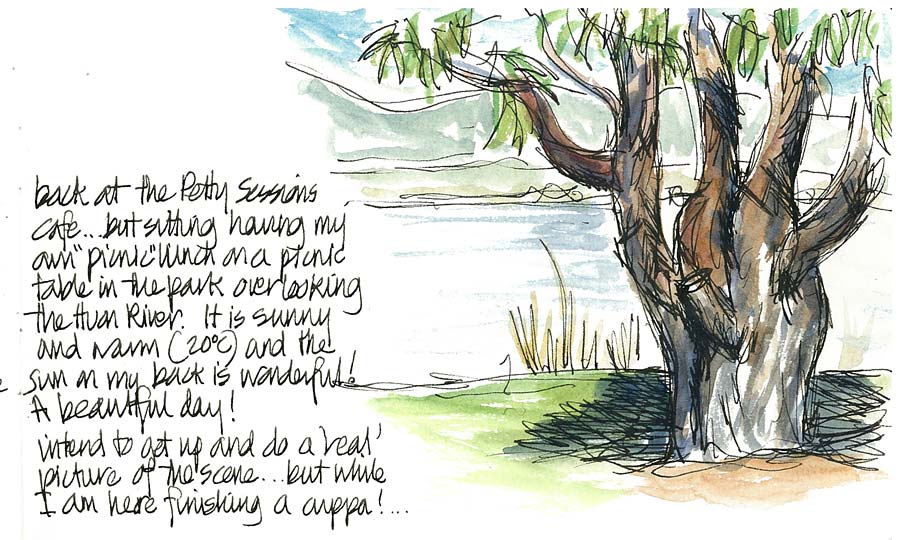 back at the Petty Sessions
cafe...but sitting having my
own "picnic" lunch on a picnic
table in the park overlooking
the Huon River. It is sunny
and warm (20°C) and the
sun on my back is wonderful!
A beautiful day!
intend to get up and do a 'real'
picture of the scene...but while
I am here finishing a cuppa!...